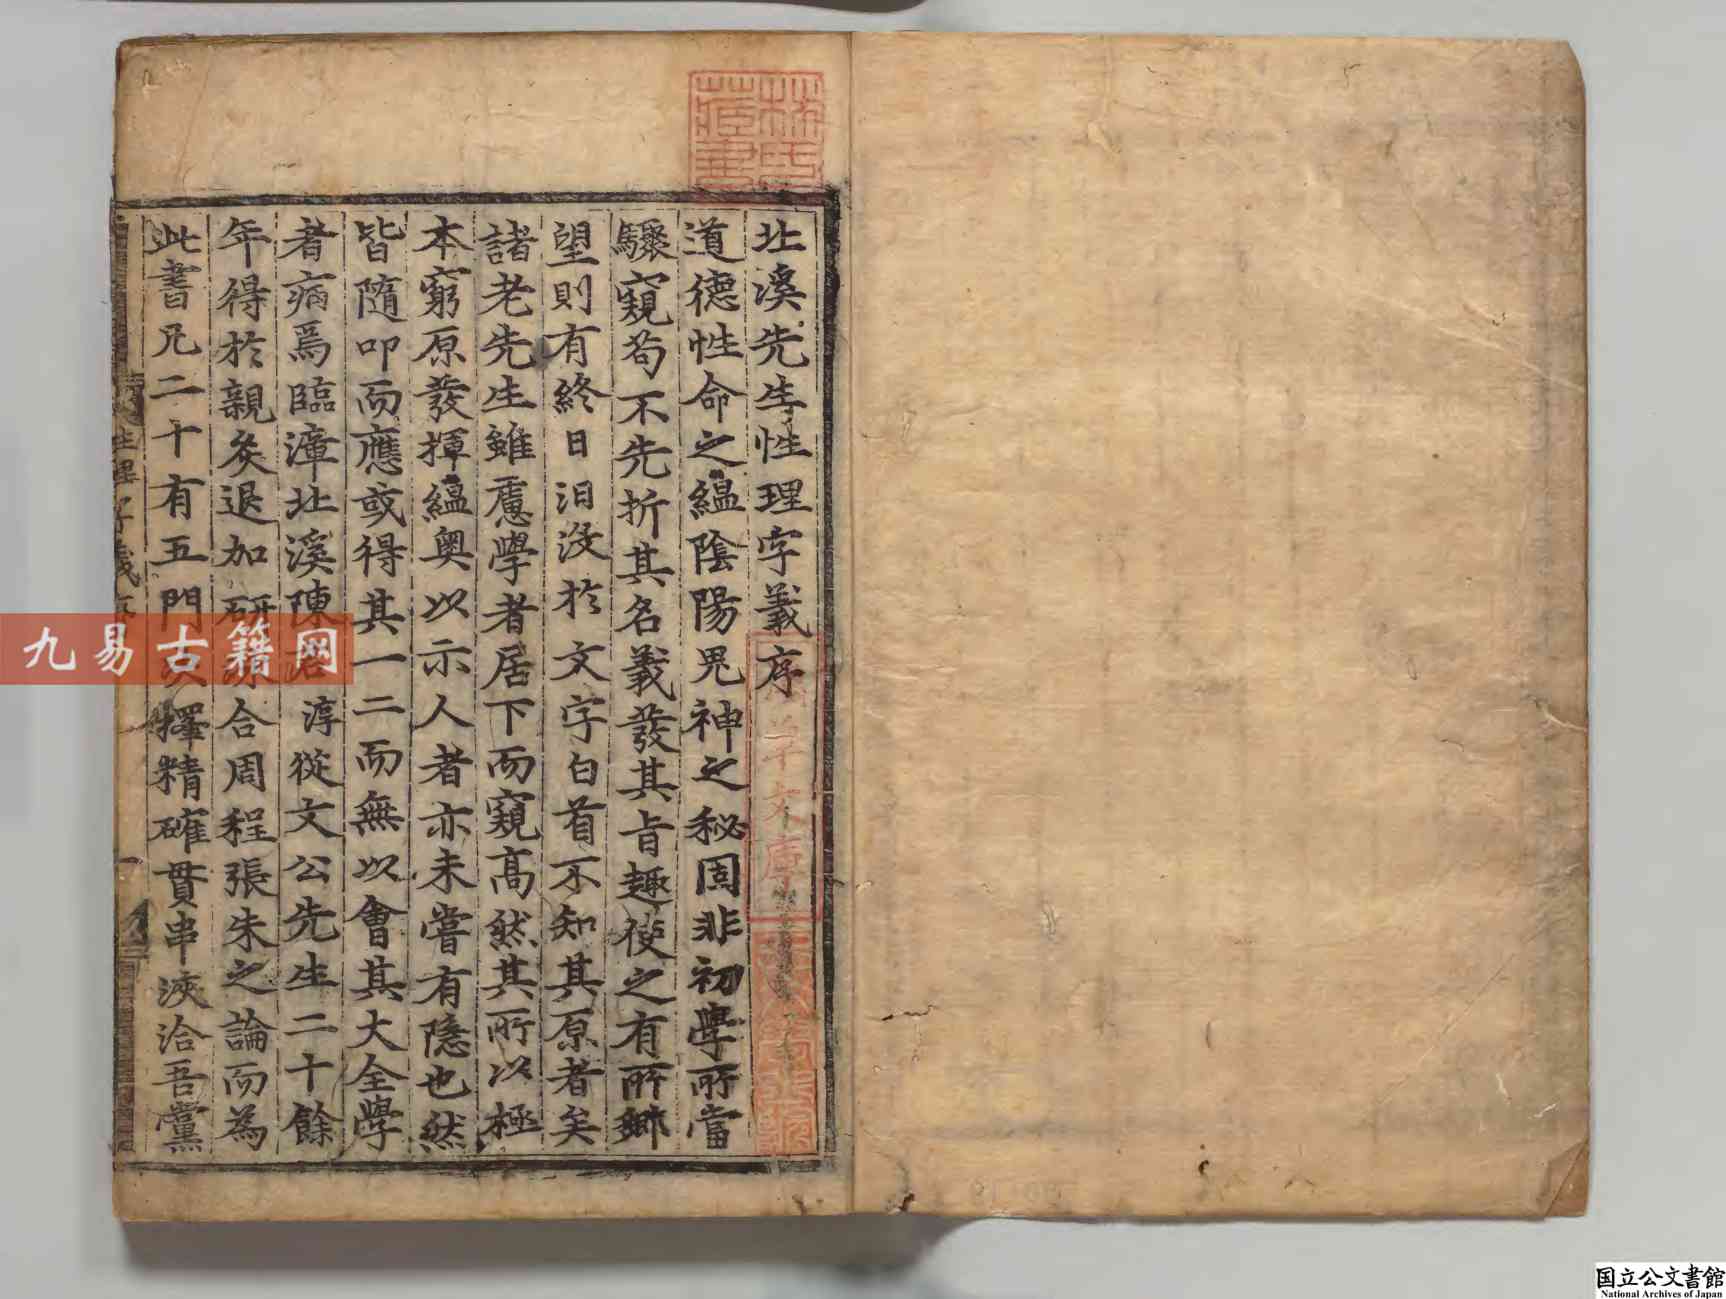 北溪先生性理字義序
道德性命之縕陰陽鬼神之秘固非初學所當
驟窺茍不先折其名義發其旨趣使之有所鄉
望則有終日汨没於文字白首不知其原者矣
諸老先生雖慮學者居下而窺高然其所以極
本窮原發揮縕奥以示人者亦未嘗有隱也然
皆隨叩而應或得其一二而無以會其大全學
者病焉臨漳北溪陳君淳從文公先生二十餘
年得於親炙退加研泳合周程張朱之論而為
此書凡二十有五門决擇精確貫串浹洽吾黨
林氏
藏書
草文庫
九易古籍网
国立公文書館
National Archives of Japan